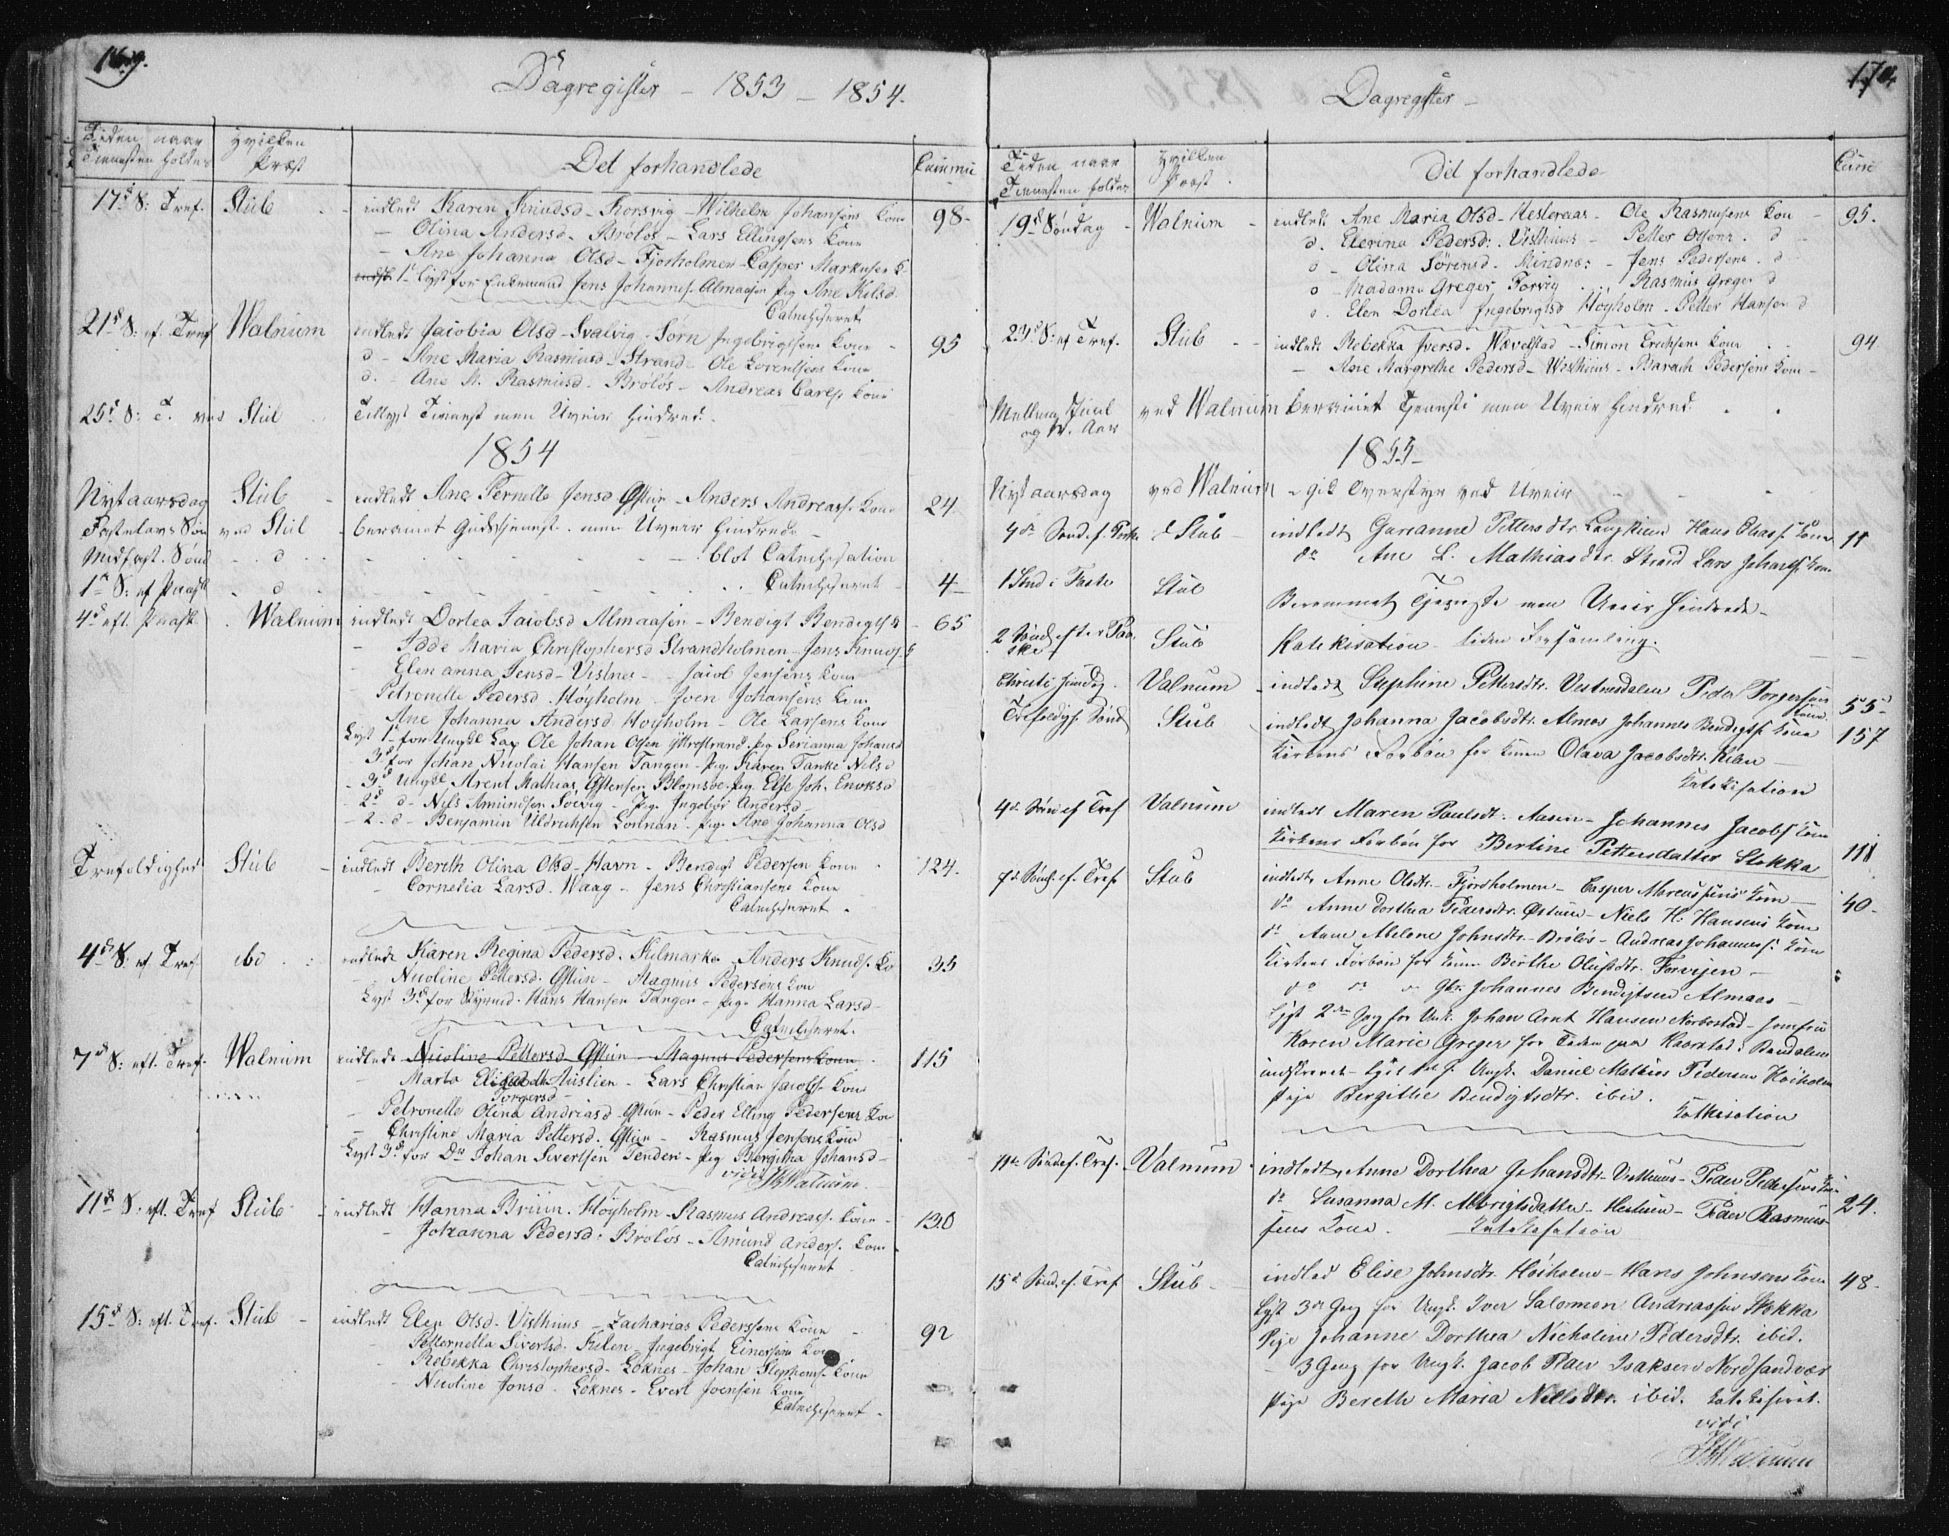 169.
Dagregister - 1853 - 1854.
Tiden naar Tienesten holdes
Hvilken Præst
Det forhandlede
Commu
17d S: Tref. Stub - indledt Karen Knudsd - Wilhelm Johansens Kone 98.
- Olina Andersd - Brøløs - Lars Ellingsens Kone
- Ane Johanna Olsd - Fjorholmen - Casper Markusens K.
1t Lyst for Enkemand Jens Johannes. Almaasen pig Ane Nilsd.
Catechiseret
21d S: ef. Tref Walnum indledt Jacobia Olsd - Svalvig - Sørn Ingebrigtsens Kone 95
d - Ane Maria Rasmusd - Strand - Ole Lorentsens Kone
d. - Ane M. Rasmusd - Brøløs - Andreas Carels. Kone
25d S: T. ved Stub Tillyst Tienest men Uveir hindred.
1854
Nytaarsdag Stub - indledt Ane Pernelle Jensd - Anders Andreass. Kone 24
Fastelavs Søn ved Stub - berammet Gudstjenest. men Uveir hindrede
Midfast. Sønd - d - blot Catechisation
1st S: ef Paask. d Catechiseret 4
4d eft. Paask. Walnum indledt Dorlea Jacobsd Almaasen - Bendigt Bendigts. K 65
- Idde Maria Christophersd Strandholmen - Jens Knuds. K
- Elen Anna Jensd - Vistnes - Jacob Jensens Kone
- Petronelle Pedersd Høyholm - Iven Johansens Kone
- Ane Johanna Andersd Høyholm - Ole Larsens Kone
Lyst 1t for Ungkl Lap Ole Johan Olsen Yttrestrand pig Serianna Johansd
- 3d for Johan Nicolai Hansen Tangen - pig Karen Tanke Nilsd
- 3d Ungkl Arent Mathias Blomsøe. pig Else Joh. Enoksd
- 2d d - Nils Amundsen Sørvig - Pig. Ingebor Andersd
- 2. d - Benjamin Uldrichsen - pig Ane Johanna Olsd
Trefoldighed Stub - indledt Bereth Olina Olsd - Havn - Bendigt Pedersen Kone 124.
- Cornelia Larsd. Waag - Jens Christiansens Kone
Catechiseret.
4d S: ef. Tref. ibd indledt Karen Regina Pedersd. - Anders Knuds. Ko 35
- Nicoline Pettersd. - Magnus Pedersens Kon
Lyst 3d for Hans Hansen Tangen - pige Hanna Larsd -
Catechiseret.
7d S: eft. Tref. Walnum indledt Nicoline Pettersd - Magnus Pedersens Kone. 115
Marta Elisabeth Torgersd - Lars Christian Jacobs. Kone
- Petronelle Olina Andreasd - Peder Elling Pedersens Kon
- Christine Maria Pettersd. - Rasmus Jensens Kone
Lyst 3d for Johan Sivertsen Tenden - pig Bergitha Johansd -
vidi Walnum
11d S: eft. Tref Stub - indledt Hanna Bruun. Høyholm - Rasmus Andreass. Kone - 130
- Johanna Pedersd. Brøløs - Amund Anders. Kone
Catechiseret
15d S: eft. Tref. Stub - indledt Elen Olsd. Visthuus - Zacharias Pedersens Kone 92
- Petternella Sivertsd. - Ingebrigt Einersens Kone
- Rebekka Christophersd - Løknes - Johan Stephens. Kone
- Nicoline Jonsd. Løknes - Evert Joensen Kone
Catechiseret.
170.
Dagregister -
Tiden naar Tienesten holdes
Hvilken Præst.
Det forhandlede
Com
19d Søndag - Walnum - indledt Ane Maria Olsd - - Ole Rasmusens Kon - 95.
d. Elerina Pedersd: Visthuus - Petter Olsens. d
o - Olina Sørensd. Mindnæs - Jens Pedersens. d
o - Madame Greger Forvig - Rasmus Greger d
o. Elen Dortea Ingebrigtsd Høyholm - Petter Hansen d
23d S: ef Tref. Stub - indledt Rebekka Iversd. Wævelstad - Simon Erichsens Kone 94
- Ane Margrethe Pedersd - Visthuus - Barach Pedersens Kone -
Mellem Juul og N. Aar ved Walnum berammet Tjeneste men Uveir hindred.
1855
Nytaarsdag ved Walnum - gik Overstyr ved Uveir
4de Sønd. f. d Stub - indledt Garianne Pettersdtr. Hans Olsens Kone 11
do Ane L. Mathiasdtr. Strand Lars Johans. Kone
1 Sønd i Faste Stub Berammet Tjeneste men Uveir hindrede -
2 Sønd. efter Paaske Stub Katekisation - liden Forsamling.
Christi Walnum - indledt Stephine Pettersdtr. Vestnesdalen Peder Torgersens Kone 55
Trefoldigh. Sønd Stub indledt Johanna Jacobsdtr. Almaas Johannes Bendigts. Kone 157
Kirkens Forbøn for Konen Olava Jacobsdtr. -
Katekisation
4de Sønd ef Tref Valnum indledt Maren Paulsdt. Aasen - Johannes Jacobs Kone
Kirkens Forbøn for Bertine Pettersdatter Stokka 111
7de Sønd. ef. Tref Stub indledt Anne Olsdtr. - Fjordholmen - Casper Marcussens Kone - 40.
do Anne Dorthea Pedersdtr. - Niels H. Hansens Kone
do Anne Abelone Johnsdtr - Brøløs - Andreas Johannes. Kone
Kirkens Forbøn for Konen Berthe Olufsdtr. Forvigen -
do do Johannes Bendigtsens Almaas -
Lyst 2den Gang for Ungk. Johan Arnt Hansen Norbostad - Jomfru
Karen Marie Greger for Haarstad i Brudalen
indskrevet - Lyst for Ungk. Daniel Mathias Pedersen Høiholm
Pige Bergithe Bendigtsdtr. ibid.
Katekisation
11te Sønd ef. Tref. Valnum indledt Anne Dorthea Johansdtr - Visthuus - Peder Pedersens Kone
do Susanna M. Albrigtsdatter - - Peder Rasmus- 24.
sens Kone. Katekisation
15d Sønd. ef. Tref Stub - indled Elise Johnsdtr. Høiholm - Hans Johnsens Kone 48.
Lyst 3de Gang for Ungk. Iver Salomon Andreassen Stokka
Pige Johanne Dorthea Nicholine Pedersdtr. ibid.
- 3 Gang for Ungk. Jacob Peder Isaksen Nordsandvær
Pige Bereth Maria Nilsdtr. ibid. Katekiseret.
vidi
Walnum